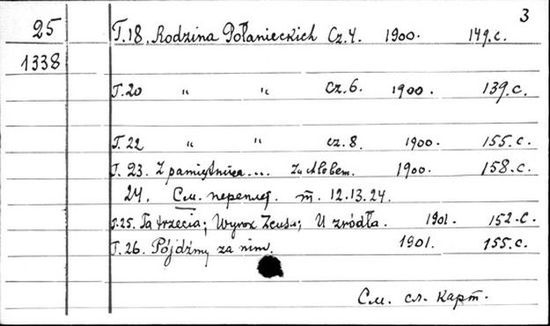 3
25 T.18. Rodzina Połanieckich Cz.4. 1900. 149.c.
1338
T.20 " " Cz.6. 1900. 139.c.
T.22 " " cz.8. 1900. 155.c.
T.23. Z pamiętnika... Za chlebem. 1900. 158.c.
24. См. переплет т. 12.13.24.
T.25. Ta trzecia; Wyrok Zeusa; U źródła. 1901. 152.c.
T.26. Pójdźmy za nim. 1901. 155.c.
См. сл. карт.